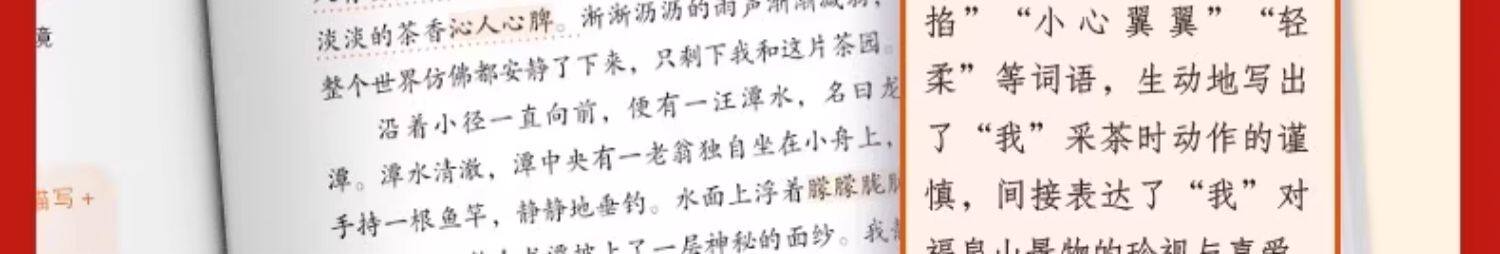 境
描写+
淡淡的茶香沁人心脾。淅淅沥沥的雨声渐渐减弱，
整个世界仿佛都安静了下来，只剩下我和这片茶园。
沿着小径一直向前，便有一汪潭水，名曰龙
潭。潭水清澈，潭中央有一老翁独自坐在小舟上，
手持一根鱼竿，静静地垂钓。水面上浮着朦朦胧胧
潭披上了一层神秘的面纱。我
掐”“小心翼翼”“轻
柔”等词语，生动地写出
了“我”采茶时动作的谨
慎，间接表达了“我”对
景物的珍视与喜爱